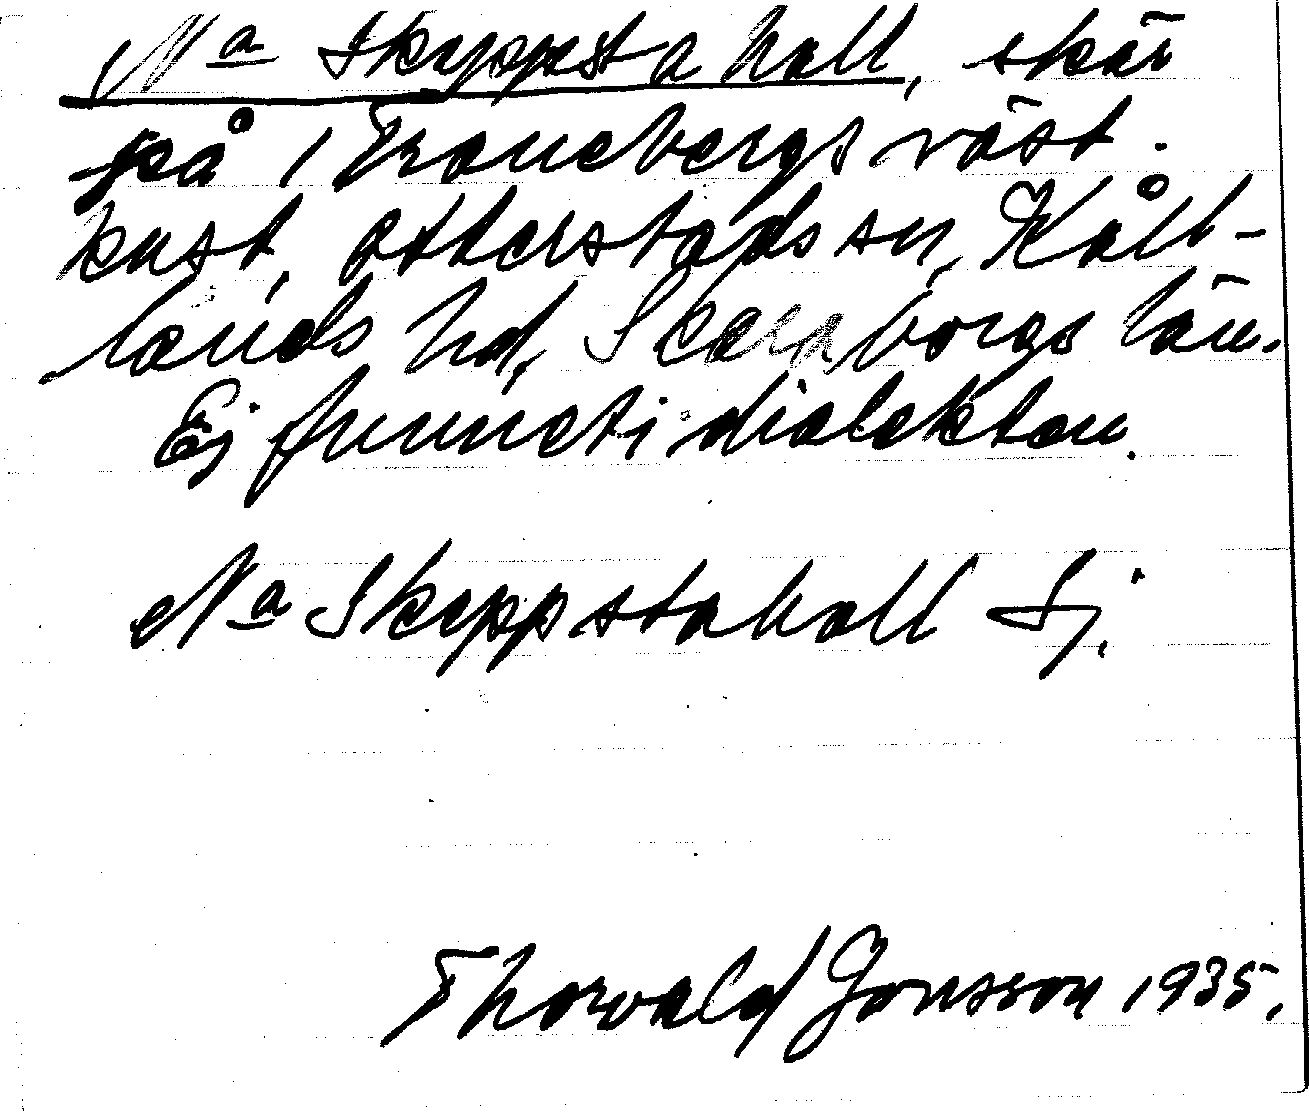 Na Skeppsta hall, skär
på Tranebergs väst.
kust, Otterstads sn, Kål-
lands hd, Skaraborgs län.
Ej funnet i dialekten.
Na Skeppstahall Sj.
Thorvald Jonsson 1935.